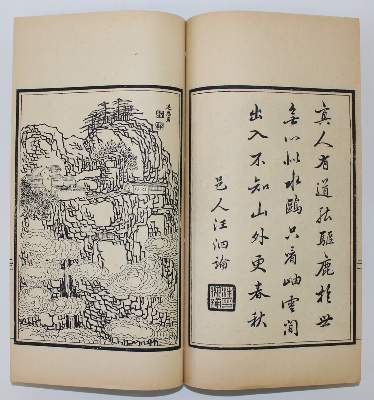 真人有道能驅鹿於世
無心似水鷗只看岫雲閒
出入不知山外更春秋
邑人汪泗論